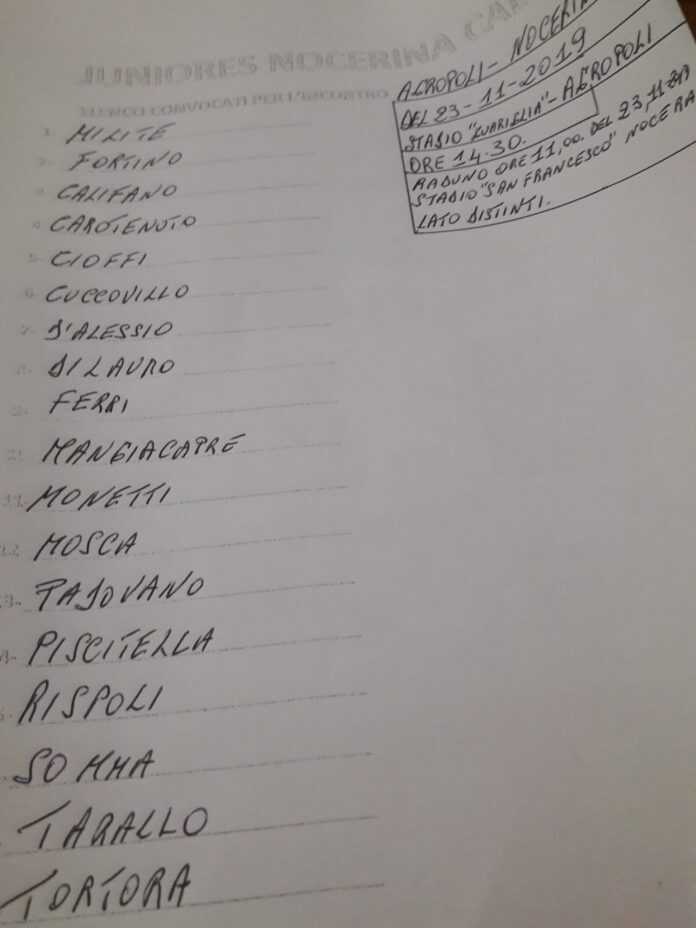 JUNIORES NOCERINA
ELENCO CONVOCATI PER L'INCONTRO
AGROPOLI - NOCERINA
DEL 23-11-2019
STADIO "GUARIGLIA" - AGROPOLI
ORE 14.30.
RADUNO ORE 11,00. DEL 23,11.2019
STADIO "SAN FRANCESCO" NOCERA
LATO DISTINTI.
1. MILITE
2. FORTINO
3. CALIFANO
4. CAROTENUTO
5. CIOFFI
6. CUCCOVILLO
7. D'ALESSIO
8. DI LAURO
9. FERRI
MANGIACAPRE
11. MONETTI
12. MOSCA
13. PADOVANO
14. PISCITELLA
RISPOLI
SOMMA
TARALLO
TORTORA